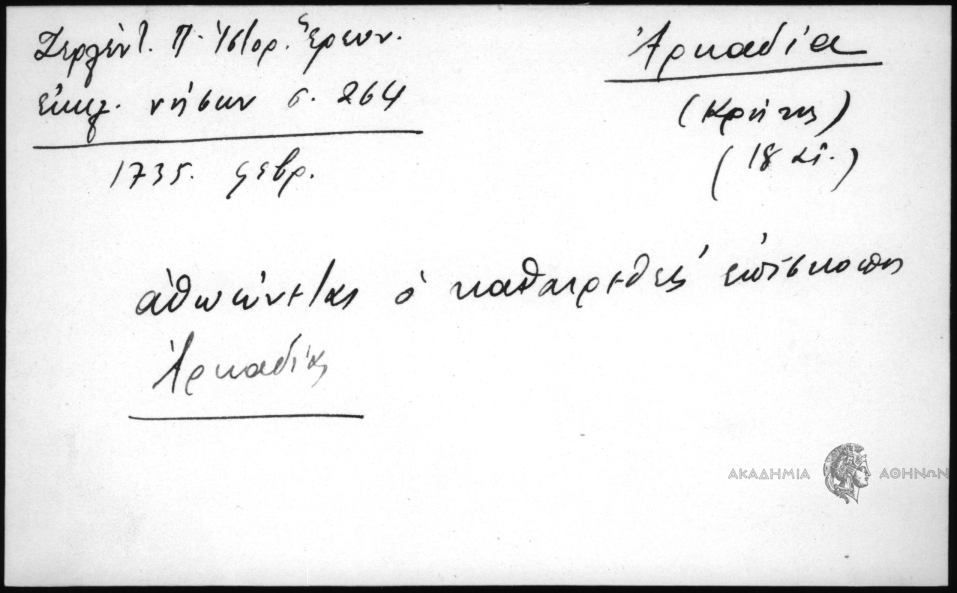 Ζερλέντ. Π. Ἱστορ. Ἔρευν.
ἐκκλ. νήσων σ. 264
1735. Φεβρ.
Ἀρκαδία
(Κρήτης)
(18 αἰ.)
ἀθωώνεται ὁ καθαιρεθεὶς ἐπίσκοπος
Ἀρκαδίας
ΑΚΑΔΗΜΙΑ ΑΘΗΝΩΝ